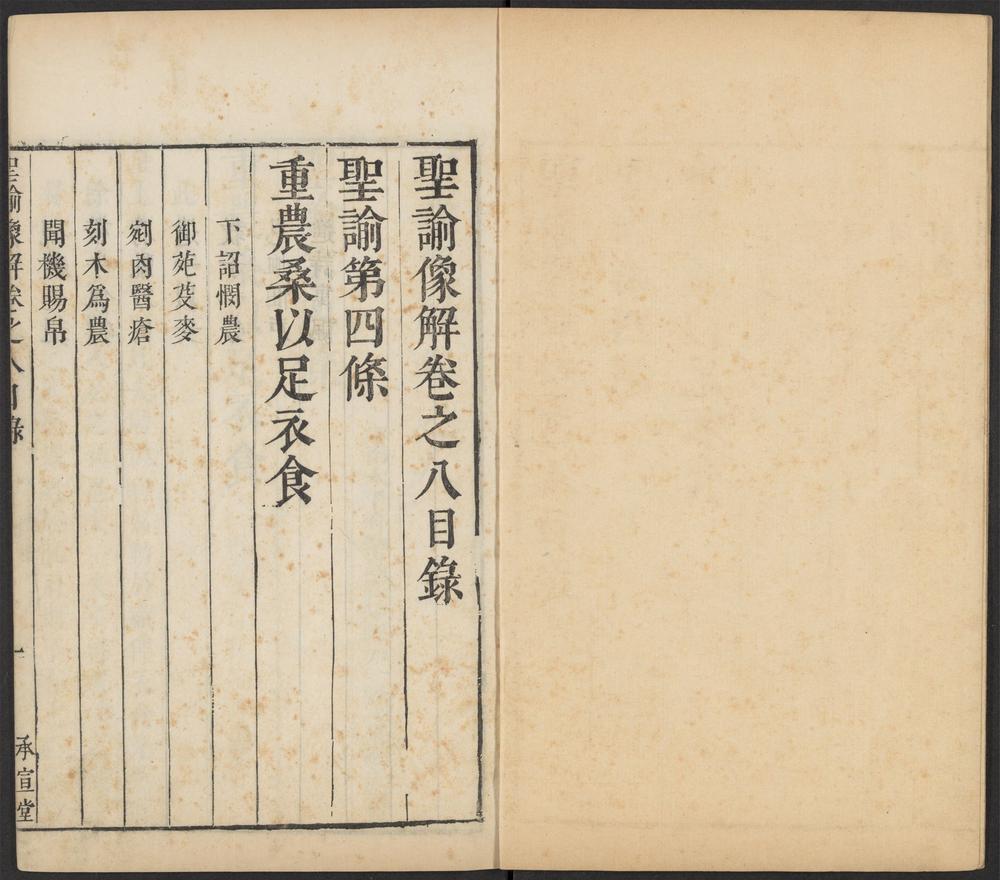 聖諭像解卷之八目錄
聖諭第四條
重農桑以足衣食
下詔憫農
御苑芟麥
剜肉醫瘡
刻木爲農
聞機賜帛
聖諭像解卷之八目錄
一
承宣堂